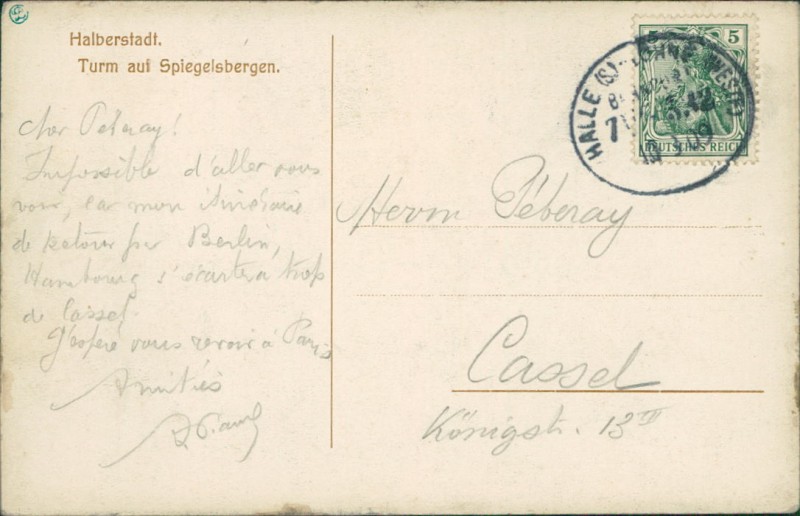 Halberstadt.
Turm auf Spiegelsbergen.
Cher Péberay!
Impossible d'aller vous
voir, car mon itinéraire
de retour par Berlin,
Hambourg s'écartera trop
de Cassel.
J'espère vous revoir à Paris
Amitiés
5 5
DEUTSCHES REICH
HALLE (S)-LÖHNE (WESTF)
BAHNPOST
Herrn Péberay
Cassel
Königstr. 13 II